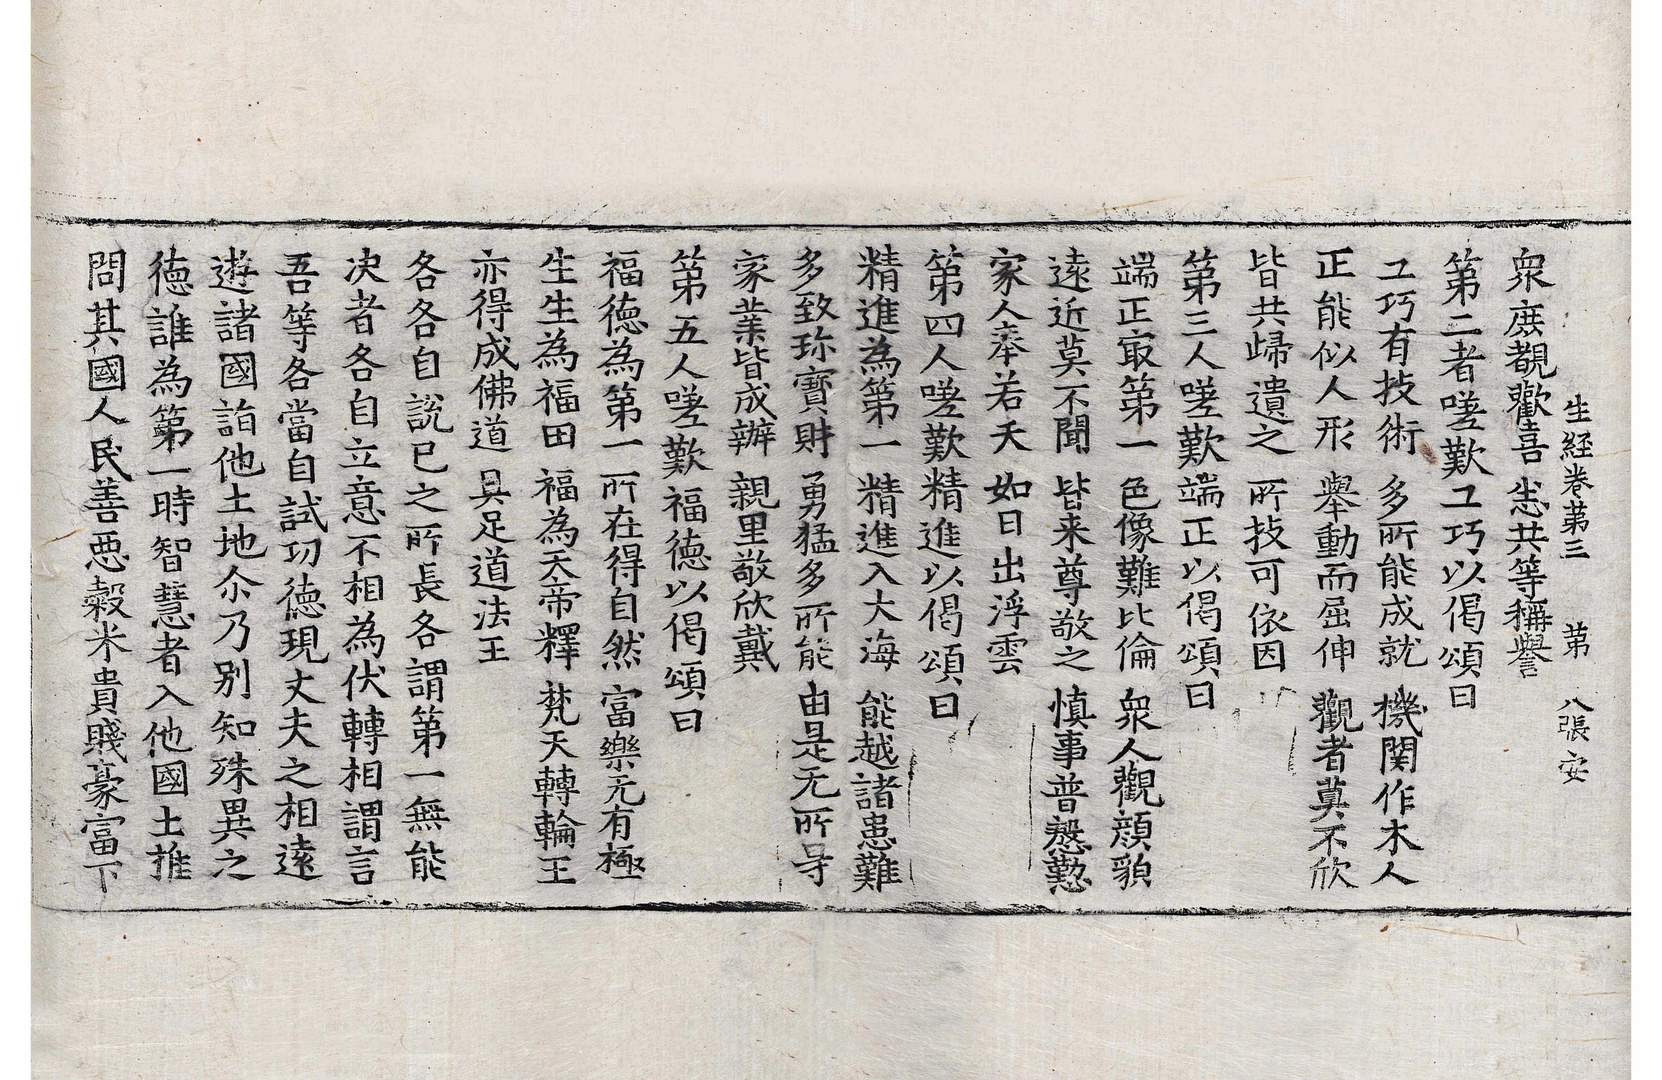 生経卷第三　第　八張　安
衆庶覩歡喜　悉共等稱譽
第二者嗟歎工巧以偈頌曰
工巧有技術　多所能成就　機関作木人
正能似人形　舉動而屈伸　觀者莫不欣
皆共歸遺之　所技可依因
第三人嗟歎端正以偈頌曰
端正㝡第一　色像難比倫　衆人觀顔貌
遠近莫不聞　皆来尊敬之　慎事普慇懃
家人奉若天　如日出浮雲
第四人嗟歎精進以偈頌曰
精進為第一　精進入大海　能越諸患難
多致珎寶財　勇猛多所能　由是无所㝵
家業皆成辦　親里敬欣戴
第五人嗟歎福德以偈頌曰
福德為第一　所在得自然　富樂无有極
生生為福田　福為天帝釋　梵天轉輪王
亦得成佛道　具足道法王
各各自説已之所長各謂第一無能
决者各自立意不相為伏轉相謂言
吾等各當自試功德現丈夫之相遠
遊諸國詣他土地尒乃别知殊異之
德誰為第一時智慧者入他國土推
問其國人民善惡穀米貴賤豪富下